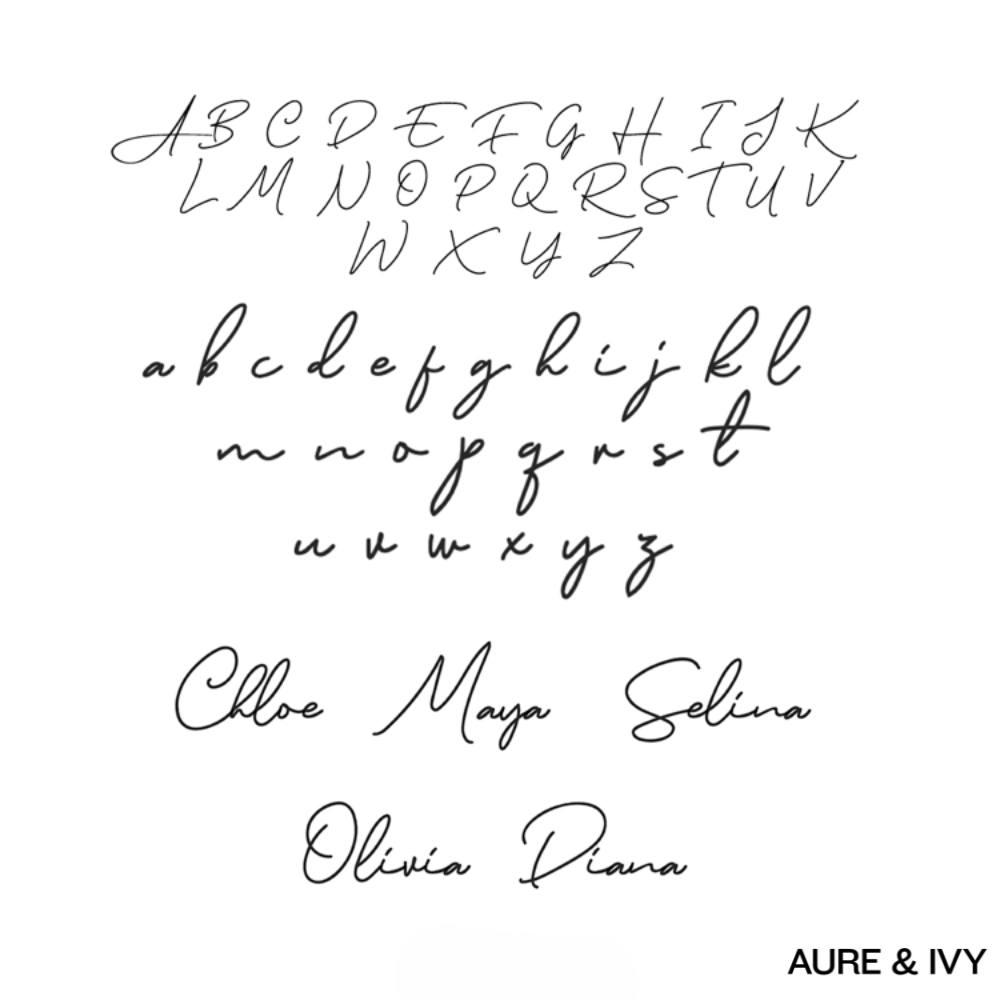 A B C D E F G H I J K
L M N O P Q R S T U V
W X Y Z
a b c d e f g h i j k l
m n o p q r s t
u v w x y z
Chloe Maya Selina
Olivia Diana
AURE & IVY